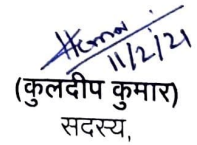 11/2/21
(कुलदीप कुमार)
सदस्य,